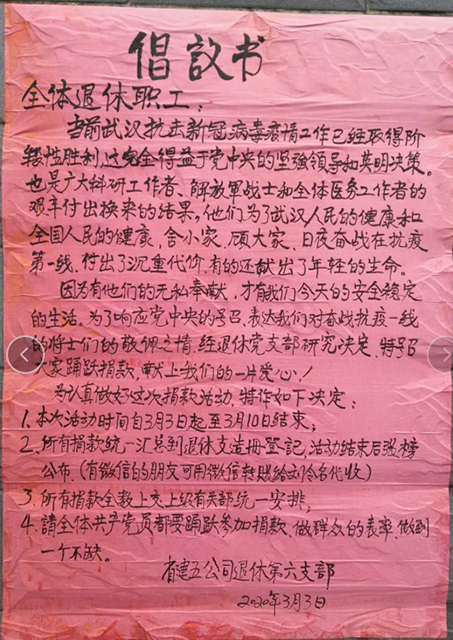 倡议书
全体退休职工：
当前武汉抗击新冠病毒疫情工作已经取得阶
段性胜利，这完全得益于党中央的坚强领导和英明决策。
也是广大科研工作者、解放軍战士和全体医务工作者的
艰辛付出换来的结果，他们为了武汉人民的健康和
全国人民的健康，舍小家，顾大家，日夜奋战在抗疫
第一线，付出了沉重代价，有的还献出了年轻的生命。
因为有他们的无私奉献，才有我们今天的安全稳定
的生活。为了响应党中央的号召，表达我们对奋战抗疫一线
的将士们的敬佩之情，经退休党支部研究决定，特号召
大家踊跃捐款，献上我们的一片爱心！
为认真做好这次捐款活动，特作如下决定：
1.本次活动时间自3月3日起至3月10日结束；
2.所有捐款统一汇总到退休支造册登記，活动结束后张榜
公布。（有微信的朋友可用微信转账给刘令名代收）
3.所有捐款全数上交上级有关部统一安排；
4.請全体共产党员都要踊跃参加捐款、做群众的表率，做到
一个不缺。
省建五公司退休第六支部
2020年3月3日